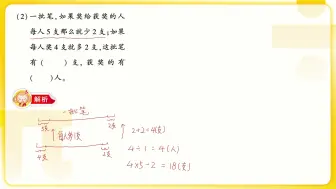 (2)一批笔,如果奖给获奖的人
每人5支那么就少2支;如果
每人奖4支就多2支,这批笔
有(　　)支,获奖的有
(　　)人。
解析
一批笔
5支 2支
每人多1支 2+2=4(支)
4支 2支
4÷1=4(人)
4×5-2=18(支)